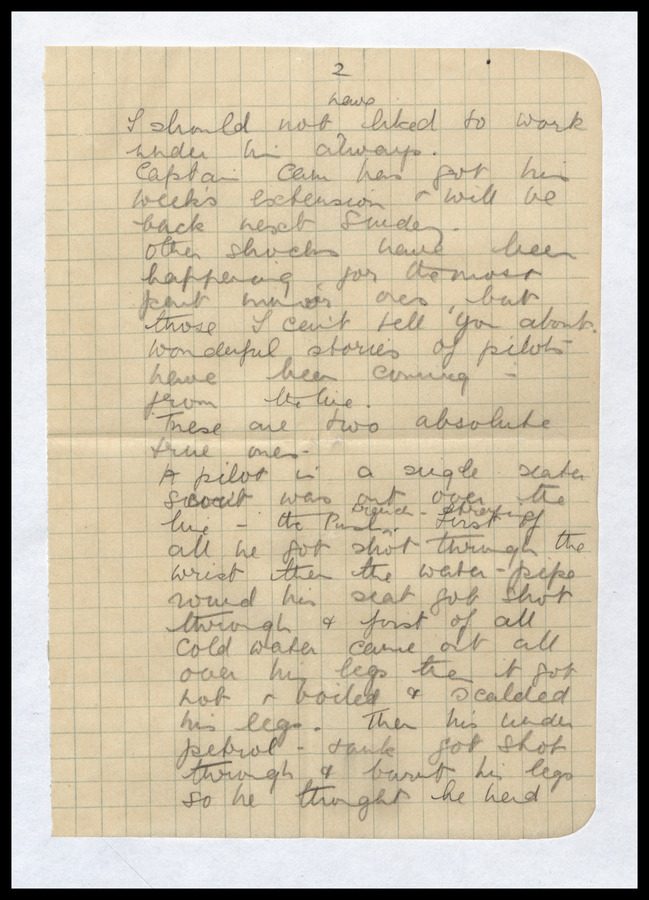 2
have
I should not liked to work
under him always.
Captain Cam has got his
week's extension & will be
back next Sunday.
Other shocks have been
happening for the most
part minor ones, but
those I can't tell you about.
Wonderful stories of pilots
have been coming -
from the line.
These are two absolute
true ones -
A pilot in a single seater
Scout was out over the
trench-strafing
line - in the Push. First of
all he got shot through the
wrist then the water-pipe
round his seat got shot
through & first of all
cold water came out all
over his legs then it got
hot & boiled & scalded
his legs. Then his under
petrol-tank got shot
through & burnt his legs
so he thought he had